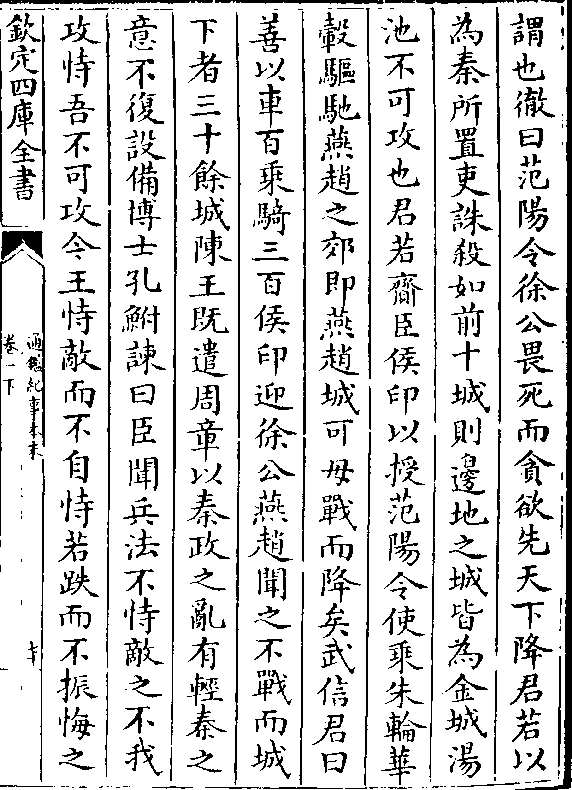 謂也徹曰范陽令徐公畏死而貪欲先天下降君若以
為秦所置吏誅殺如前十城則邊地之城皆為金城湯
池不可攻也君若齎臣侯印以授范陽令使乘朱輪華
轂驅馳燕趙之郊即燕趙城可毋戰而降矣武信君曰
善以車百乘騎三百侯印迎徐公燕趙聞之不戰而城
下者三十餘城陳王既遣周章以秦政之亂有輕秦之
意不復設備博士孔鮒諫曰臣聞兵法不恃敵之不我
攻恃吾不可攻今王恃敵而不自恃若跌而不振悔之
欽定四庫全書
通鑑紀事本末
卷一下